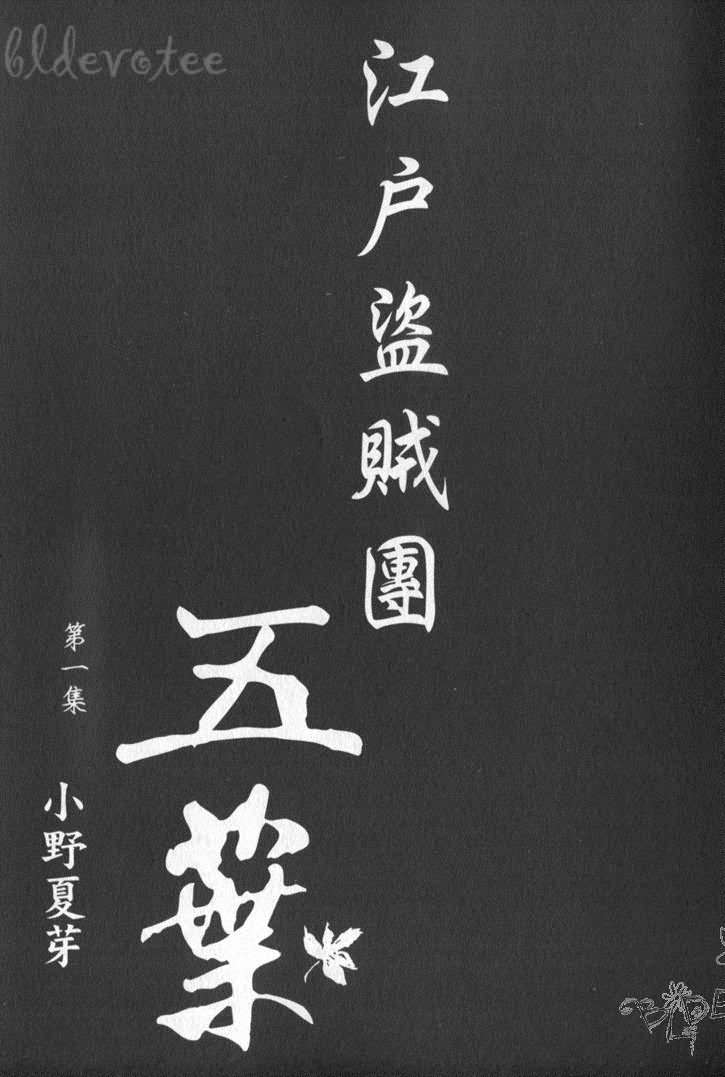 bldevotee
江戶盜賊團
五葉
第一集
小野夏芽